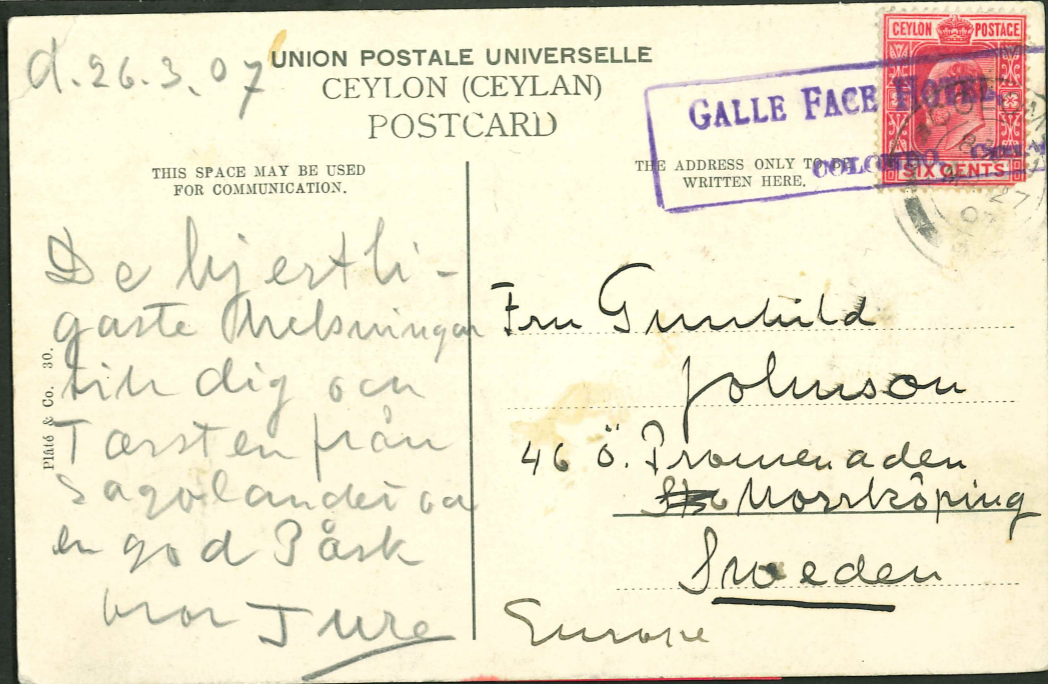 d. 26.3.07
UNION POSTALE UNIVERSELLE
CEYLON (CEYLAN)
POSTCARD
THIS SPACE MAY BE USED
FOR COMMUNICATION.
THE ADDRESS ONLY TO BE
WRITTEN HERE.
GALLE FACE HOTEL,
COLOMBO,
CEYLON POSTAGE
SIX CENTS
27
07
De hjertli-
gaste helsningar
till dig och
Torsten från
Sagolandet och
en god Påsk
bror Ture
Plâté & Co. 30.
Fru Gunhild
Johnson
46 Ö. Promenaden
Norrköping
Sweden
Europe